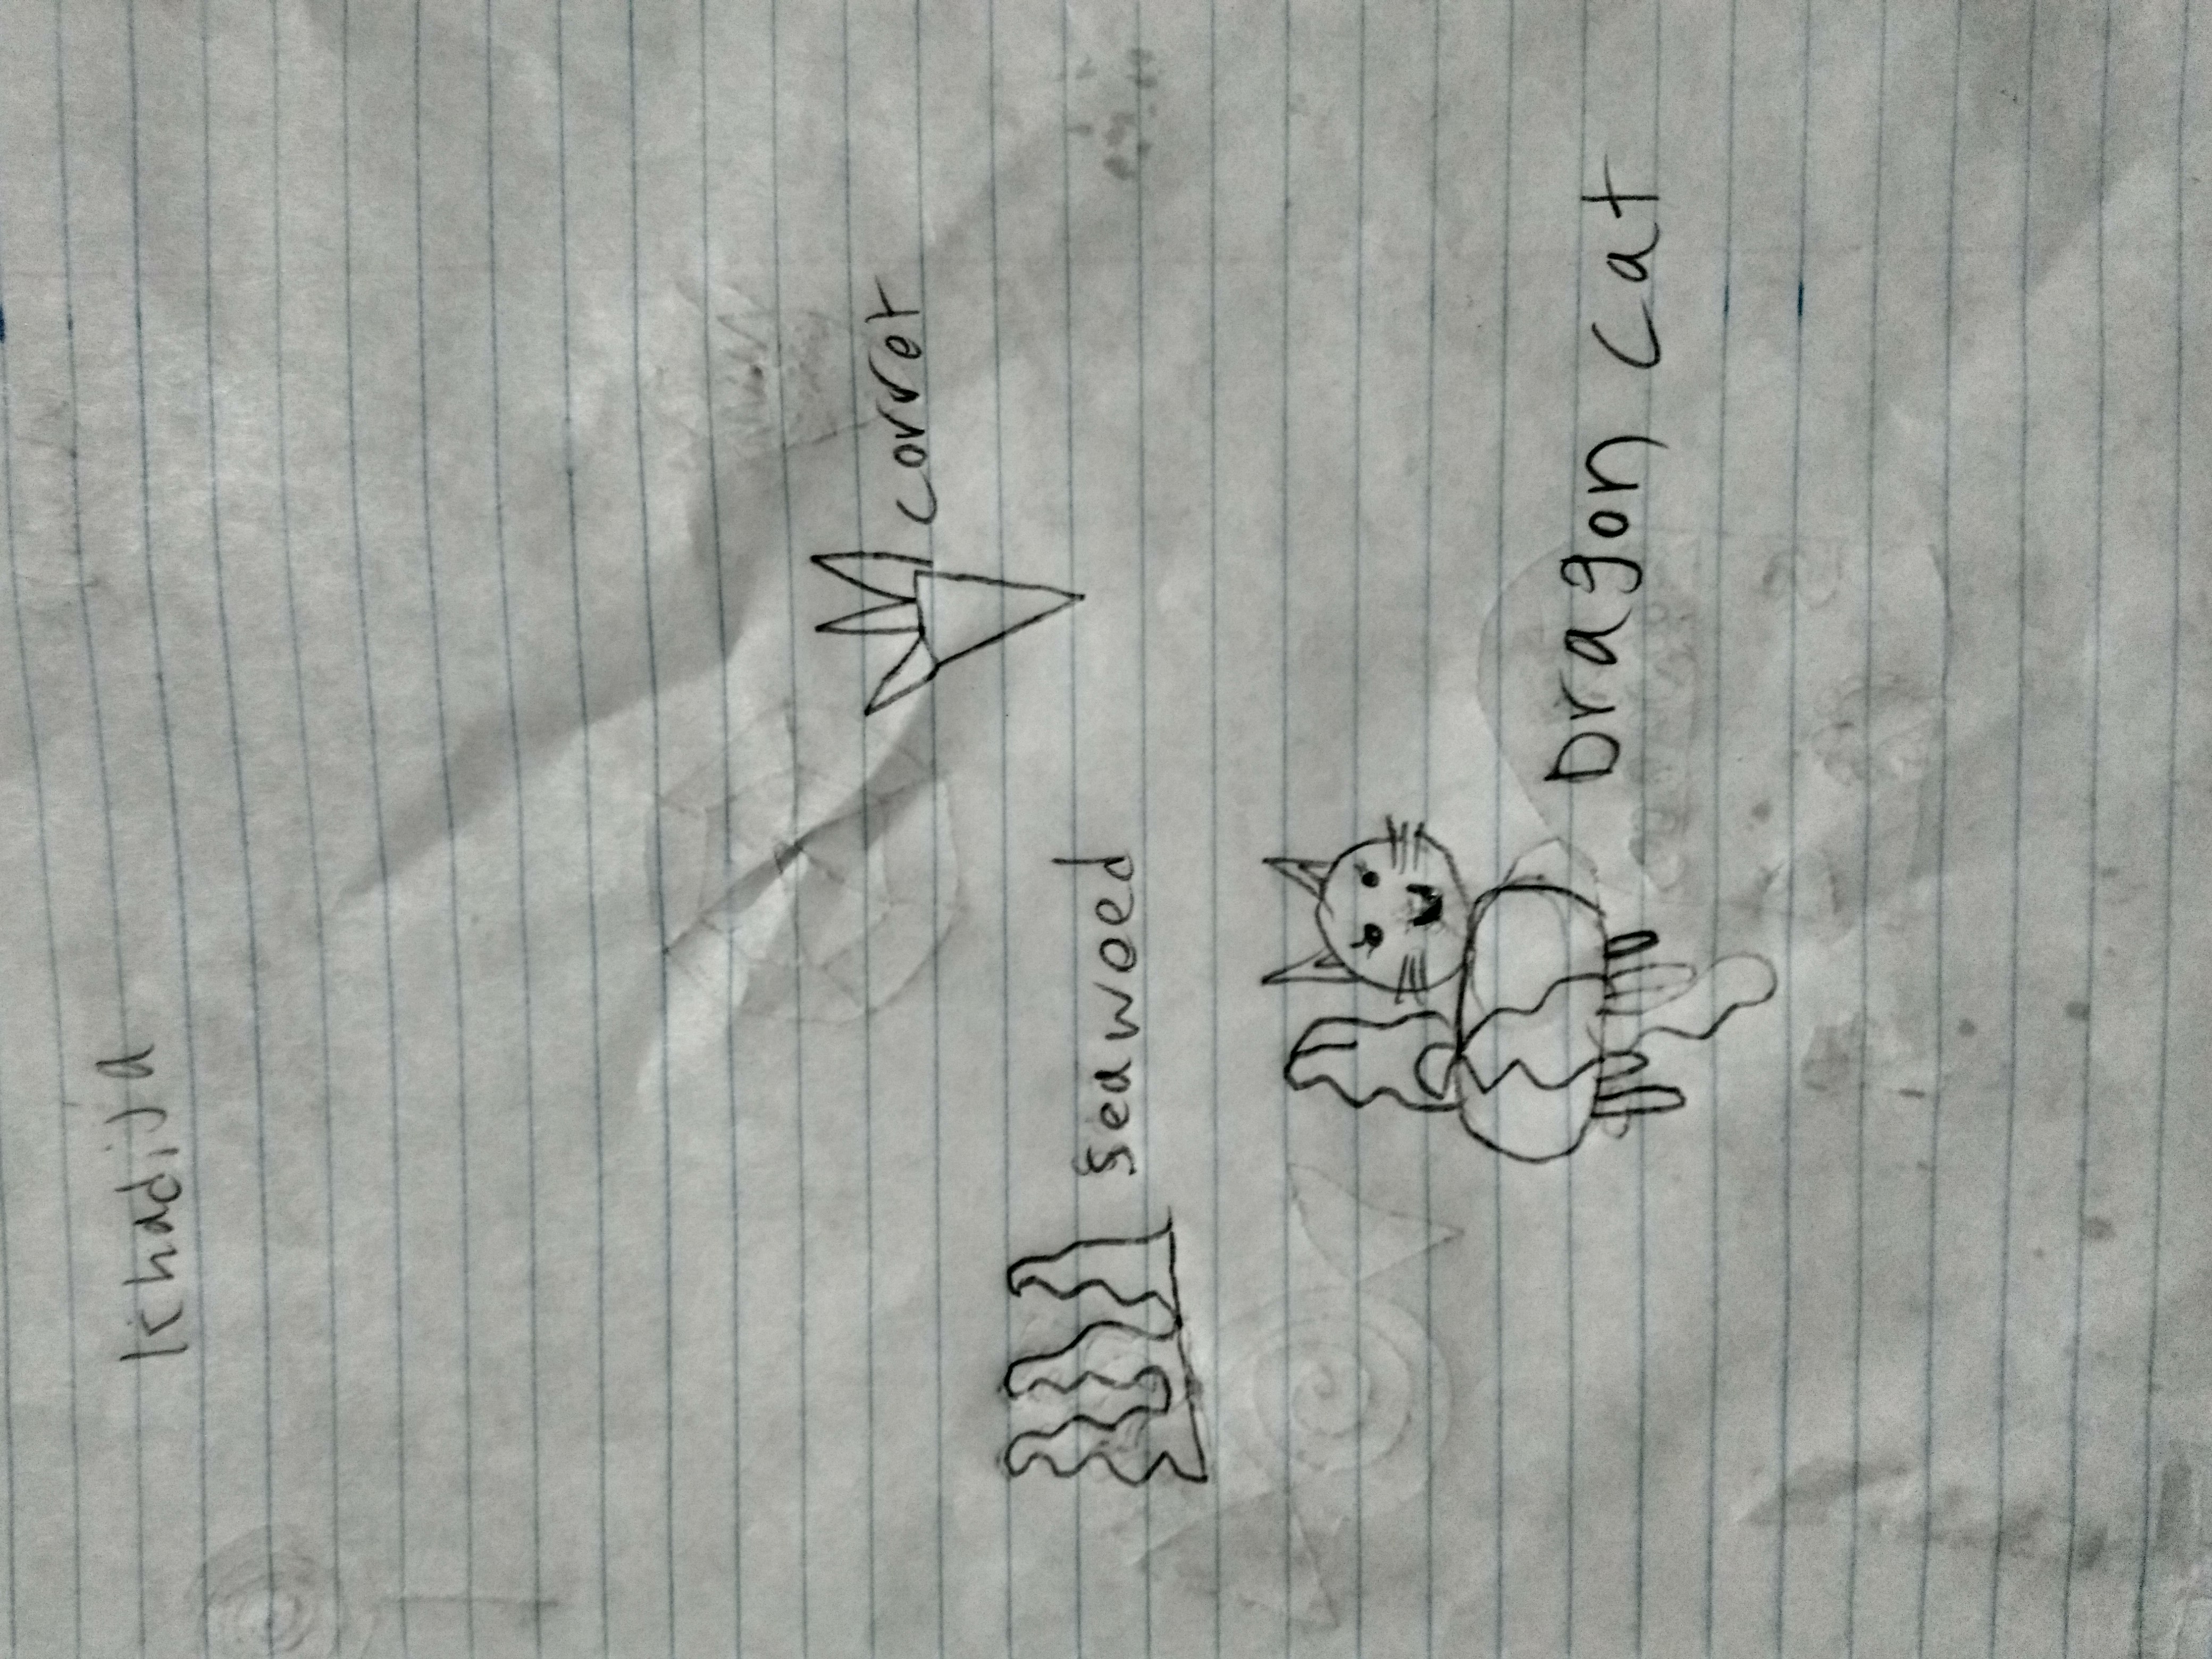 Khadija
corret
seaweed
Dragon cat